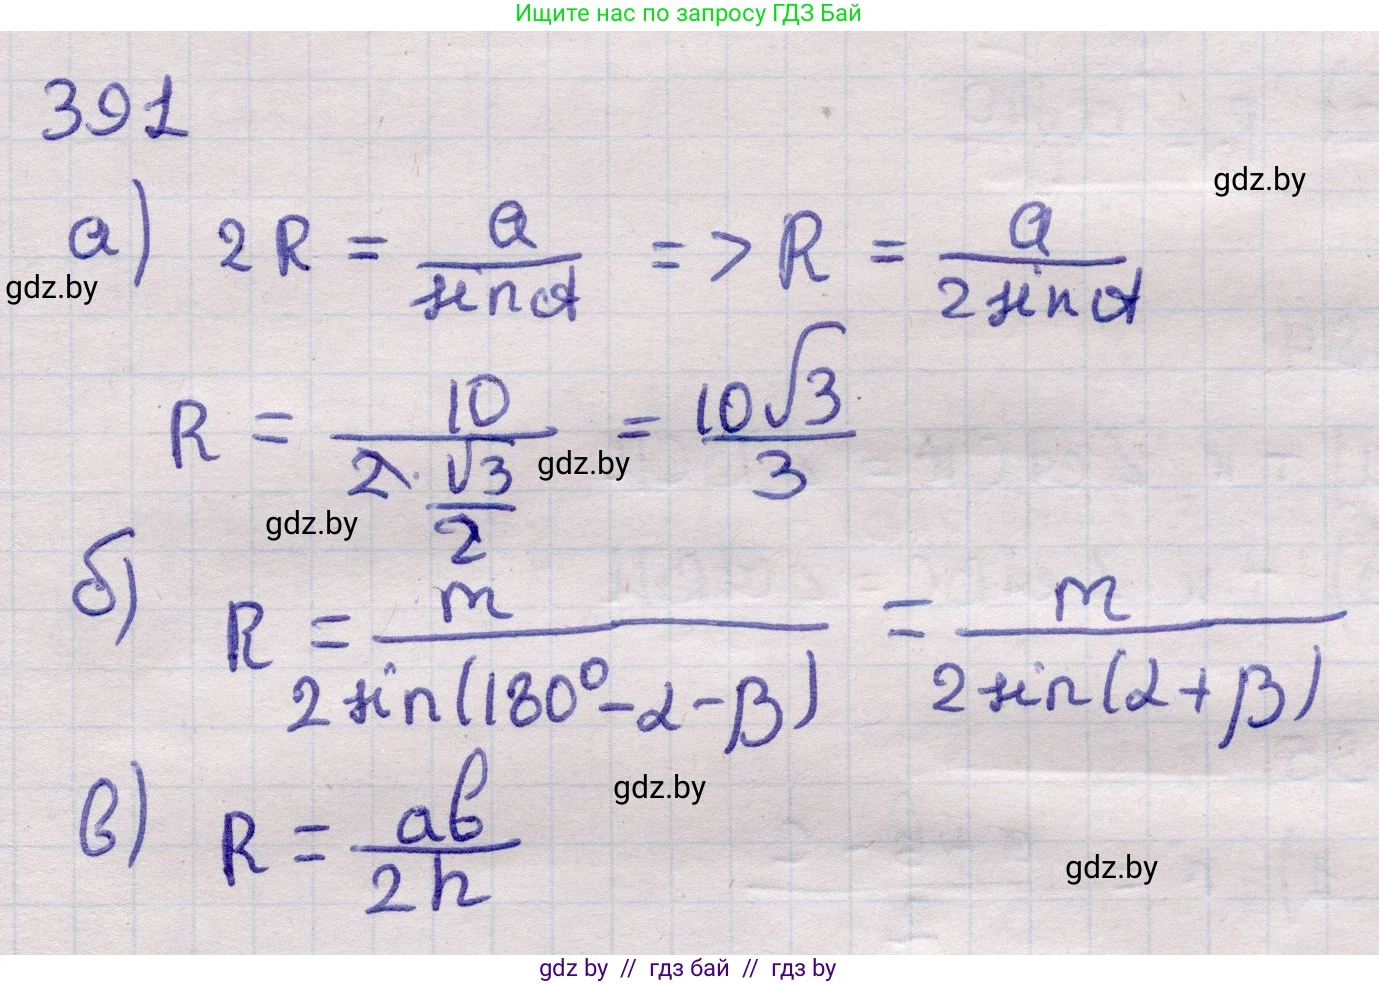 Ищите нас по запросу ГДЗ Бай
391
gdz.by
а) 2R = a/sinα => R = a/(2sinα)
gdz.by
R = 10/(2·√3/2) = 10√3/3
gdz.by
gdz.by
б) R = m/(2sin(180°-α-β)) = m/(2sin(α+β))
gdz.by
в) R = ab/2h
gdz.by
gdz by // гдз бай // гдз by